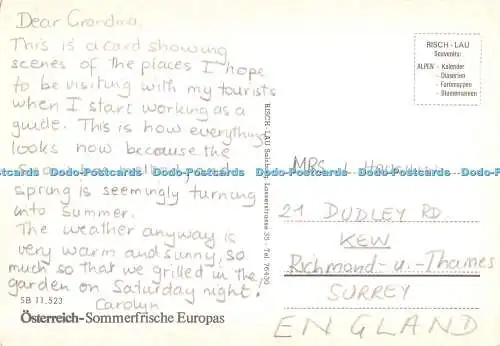 Dear Grandma,
This is a card showing
scenes of the places I hope
to be visiting with my tourists
when I start working as a
guide. This is how everything
looks now because the
spring is seemingly turning
into summer.
The weather anyway is
very warm and sunny, so
much so that we grilled in the
garden on Saturday night!
Carolyn
SB 11.523
Österreich-Sommerfrische Europas
RISCH-LAU Salzburg, Lasserstrasse 35 - Tel. 76430
RISCH-LAU
Souvenirs:
ALPEN - Kalender
- Diaserien
- Farbmappen
- Blumenmappen
MRS
21 DUDLEY RD.
KEW
Richmond-u-Thames
SURREY
ENGLAND
Dodo-Postcards Dodo-Postcards Dodo-Postcards Dodo-Postcards Dodo-Postcards